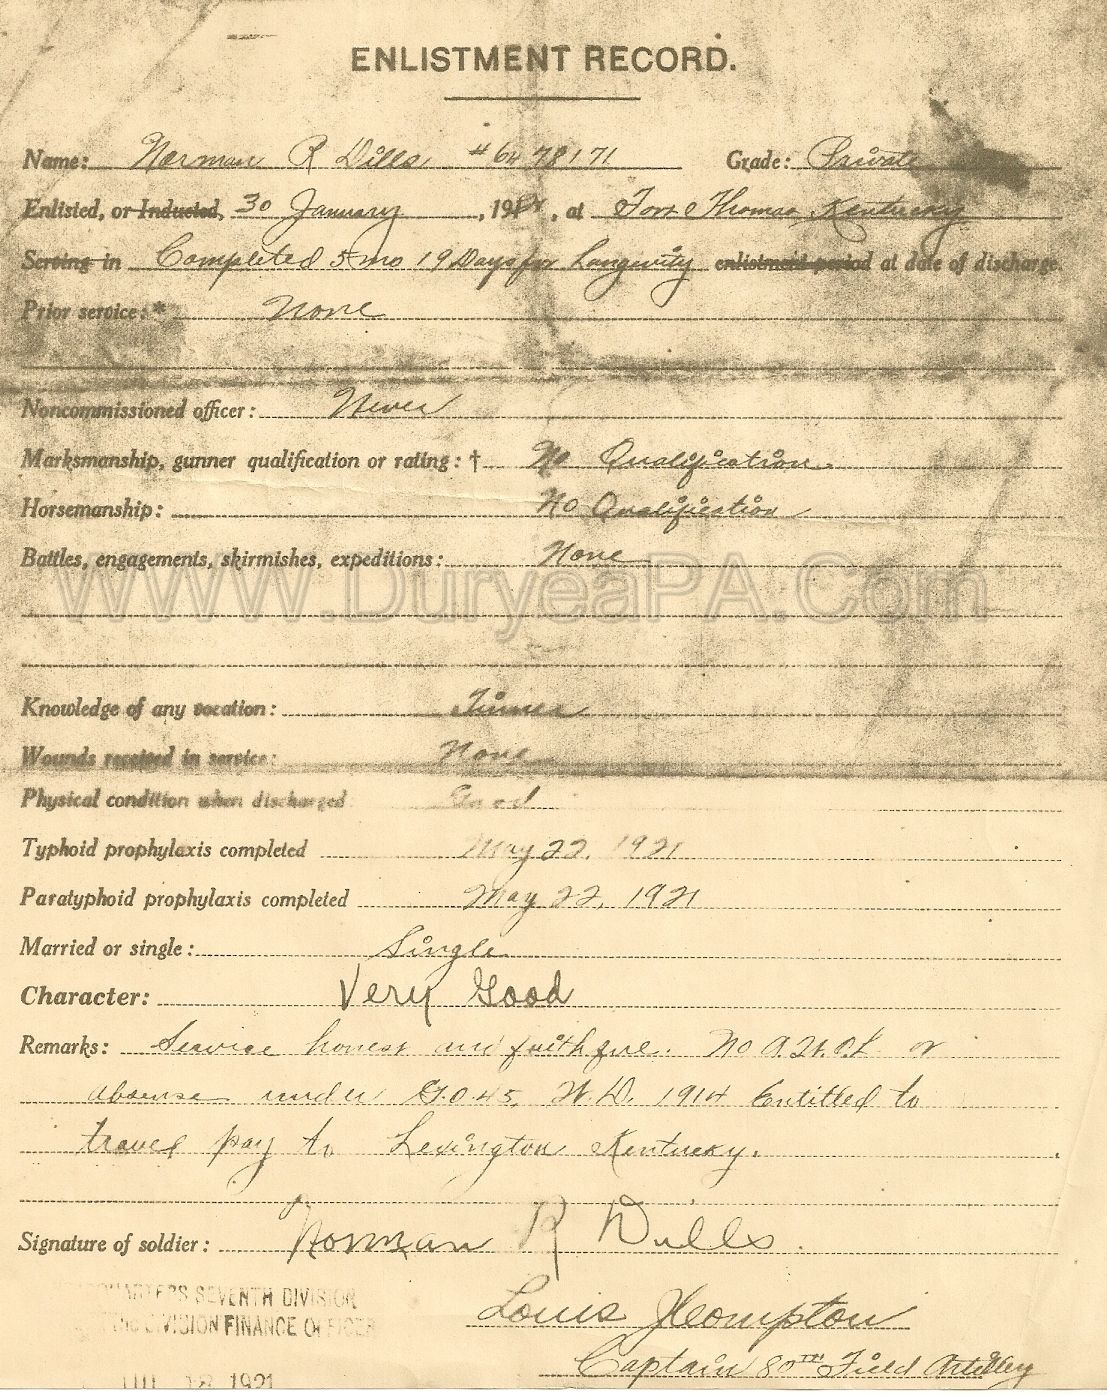 ENLISTMENT RECORD.
Name: Norman R Dills #6478171 Grade: Private
Enlisted, or Inducted, 30 January, 192 , at Fort Thomas, Kentucky
Serving in Completed 5 mo 19 Days for Longevity enlistment period at date of discharge.
Prior service:* None
Noncommissioned officer: Never
Marksmanship, gunner qualification or rating:† No Qualification.
Horsemanship: No Qualification
Battles, engagements, skirmishes, expeditions: None
www.DuryeaPA.Com
Knowledge of any vocation:
Wounds received in service: None
Physical condition when discharged Good
Typhoid prophylaxis completed May 22, 1921
Paratyphoid prophylaxis completed May 22, 1921
Married or single: Single
Character: Very Good
Remarks: Service honest and faithful. No A.W.O.L. or
absense under G.O.45, W.D. 1914 Entitled to
travel pay to Lexington Kentucky.
Signature of soldier: Norman R Dills.
HEADQUARTERS SEVENTH DIVISION
DIVISION FINANCE OFFICER
1921
Louis J Compton
Captain 80TH Field Artillery